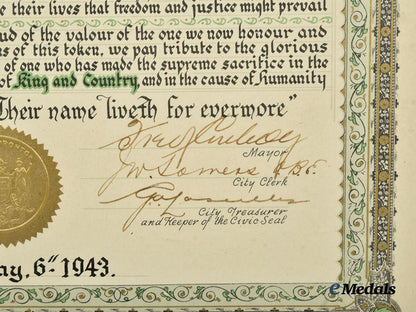 e their lives that freedom and justice might prevail
ud of the valour of the one we now honour and
ns of this token, we pay tribute to the glorious
of one who has made the supreme sacrifice in the
of King and Country, and in the cause of Humanity
Their name liveth for evermore"
Fred J. Conboy
Mayor
J.W. Somers O.B.E.
City Clerk
City Treasurer
and Keeper of the Civic Seal
ay, 6th 1943.
eMedals